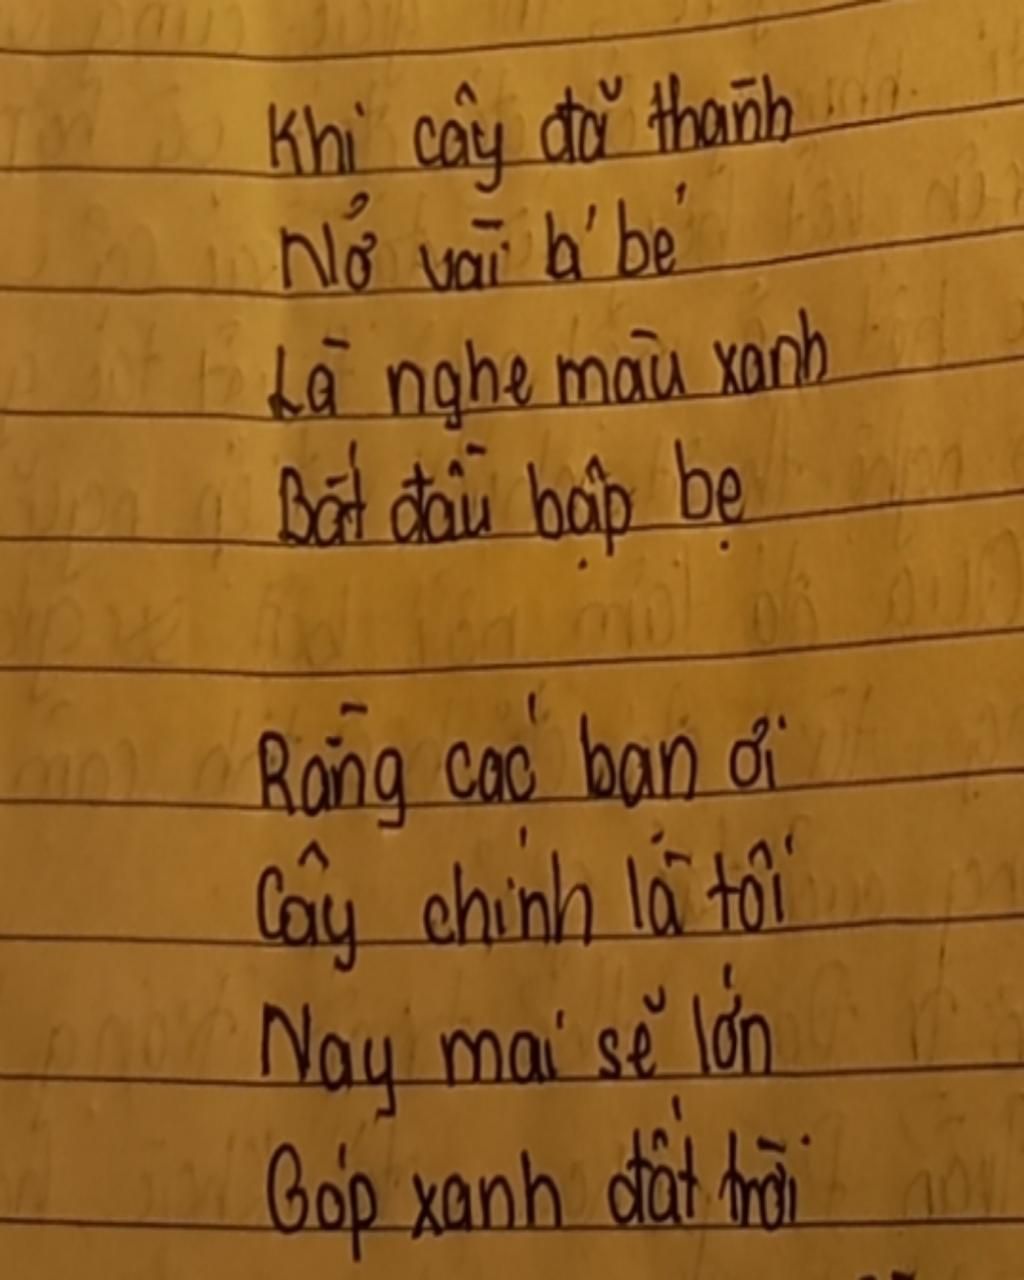 Khi cây đã thành
Nở vài lá bé
Là nghe màu xanh
Bắt đầu bập bẹ
Rằng các bạn ơi
Cây chính là tôi
Nay mai sẽ lớn
Góp xanh đất trời